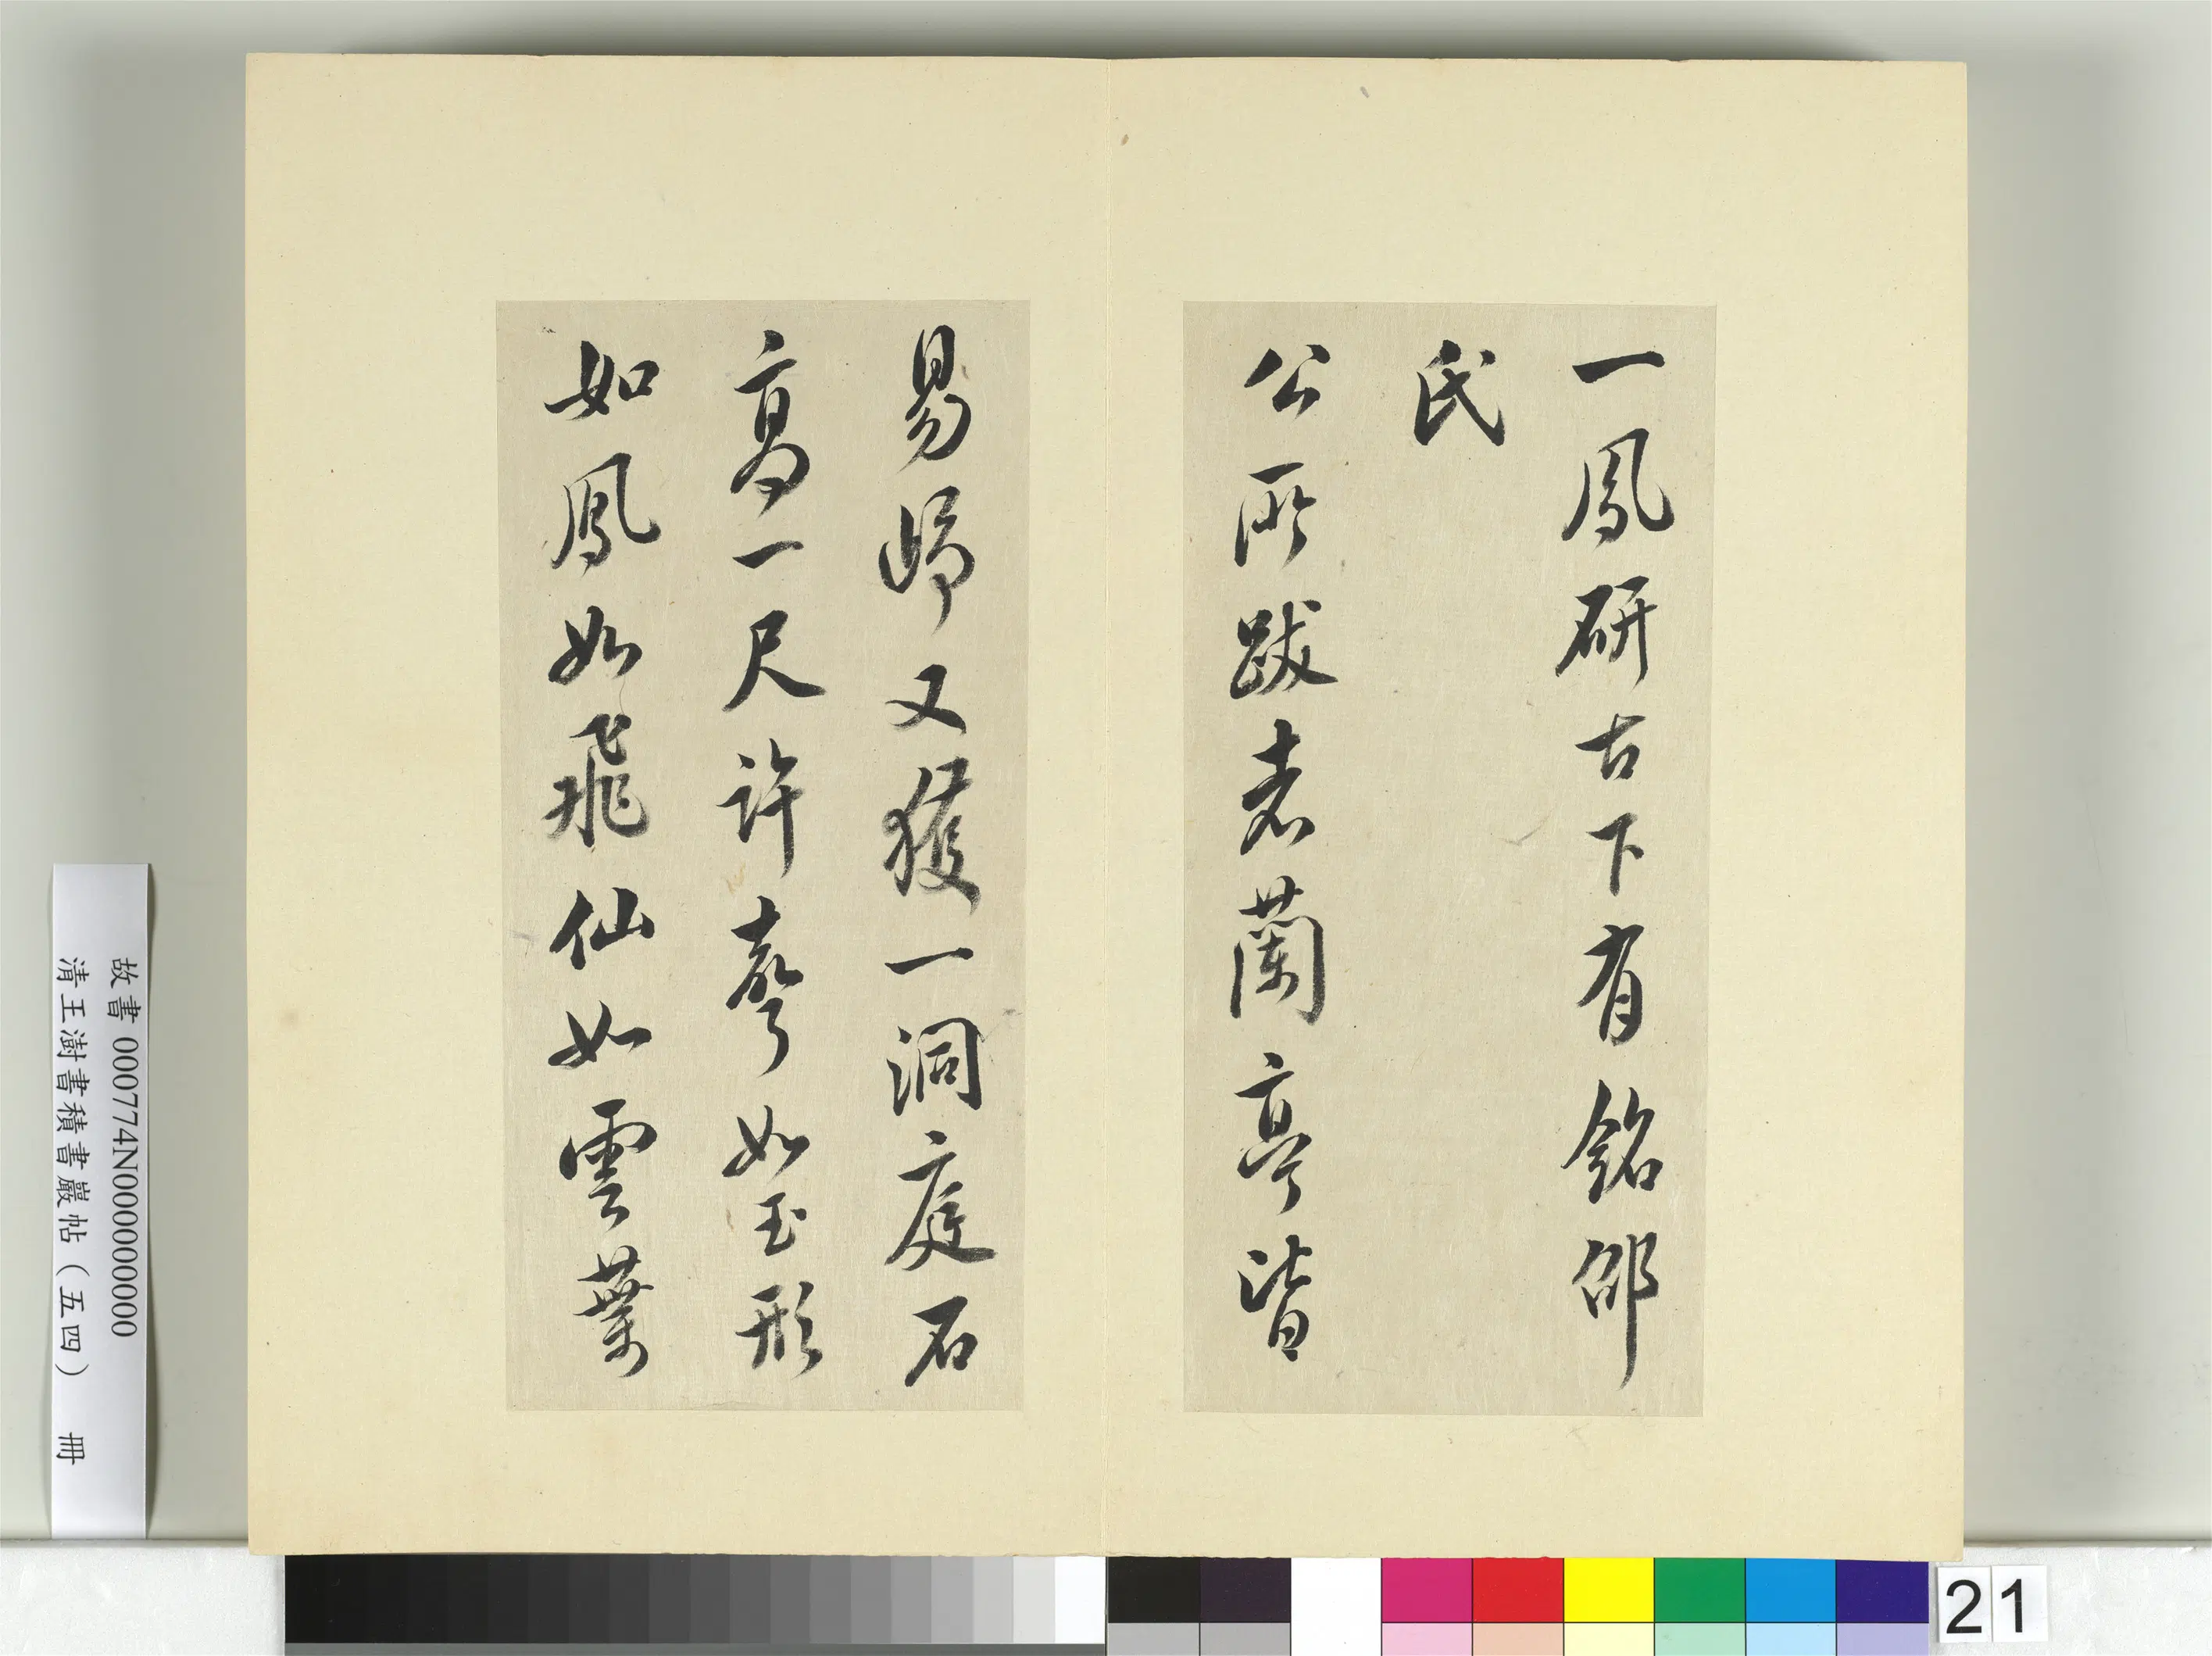 一鳳研古下有銘邵
氏
公所跋者蘭亭皆
易歸又獲一洞庭石
高一尺許聲如玉形
如鳳如飛仙如雲葉
故書 000774N000000000
清王澍書積書巖帖（五四） 冊
21